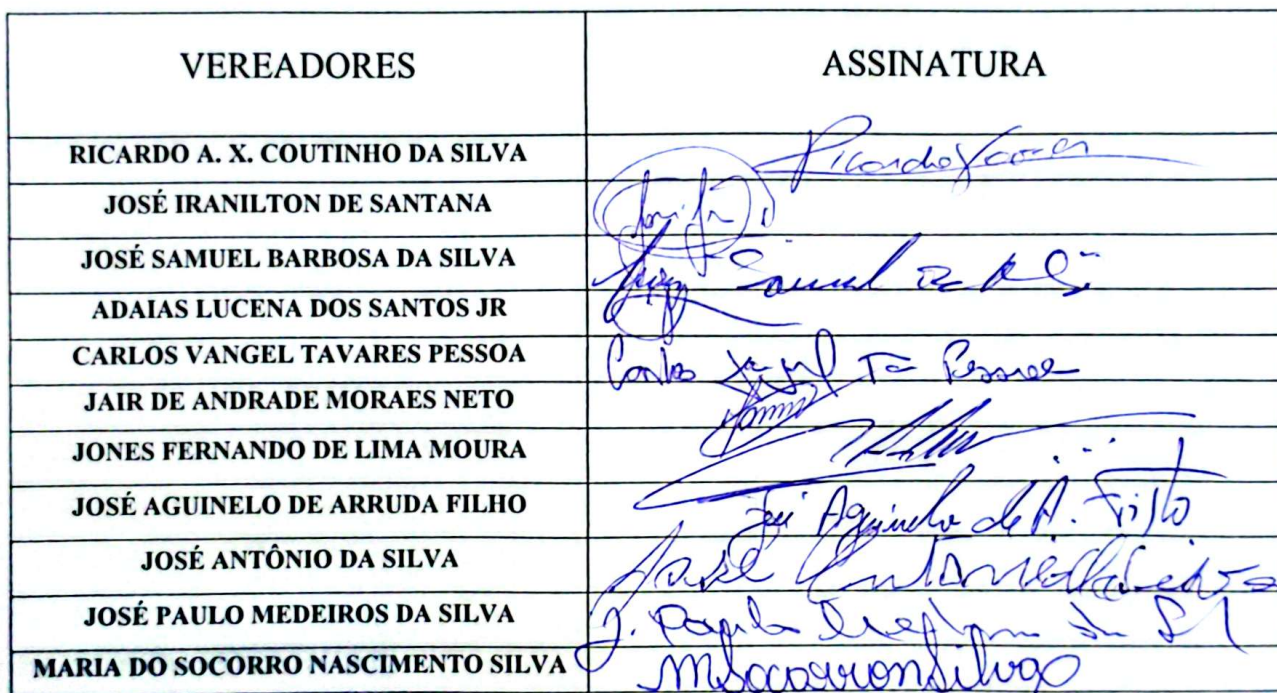 VEREADORES ASSINATURA
RICARDO A. X. COUTINHO DA SILVA
JOSÉ IRANILTON DE SANTANA
JOSÉ SAMUEL BARBOSA DA SILVA Samuel
ADAIAS LUCENA DOS SANTOS JR
CARLOS VANGEL TAVARES PESSOA Carlos Pessoa
JAIR DE ANDRADE MORAES NETO
JONES FERNANDO DE LIMA MOURA
JOSÉ AGUINELO DE ARRUDA FILHO José Aguinelo de A. Filho
JOSÉ ANTÔNIO DA SILVA José Antonio da Silva
JOSÉ PAULO MEDEIROS DA SILVA J. Paulo
MARIA DO SOCORRO NASCIMENTO SILVA MSocorronSilva